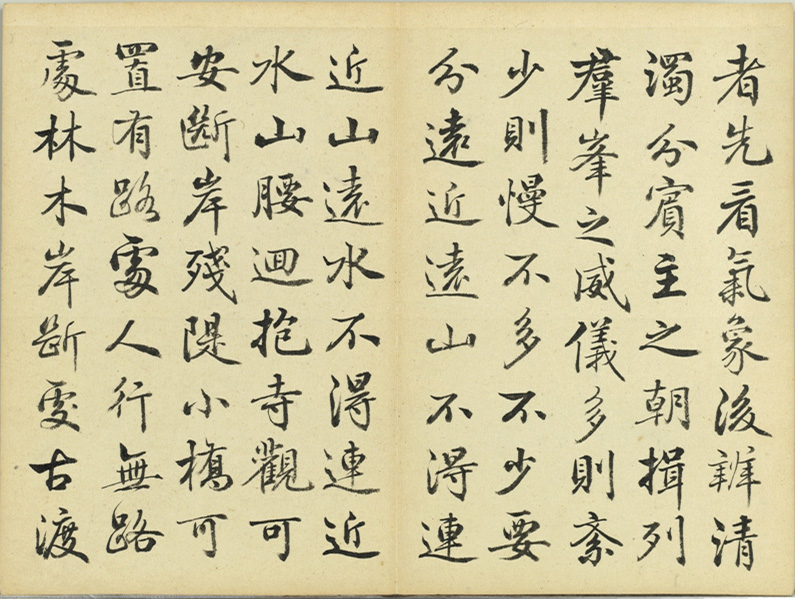 者先看氣象後辨清
濁分賓主之朝揖列
羣峯之威儀多則紊
少則慢不多不少要
分遠近遠山不得連
近山遠水不得連近
水山腰迴抱寺觀可
安斷岸殘隄小橋可
置有路處人行無路
處林木岸斷處古渡